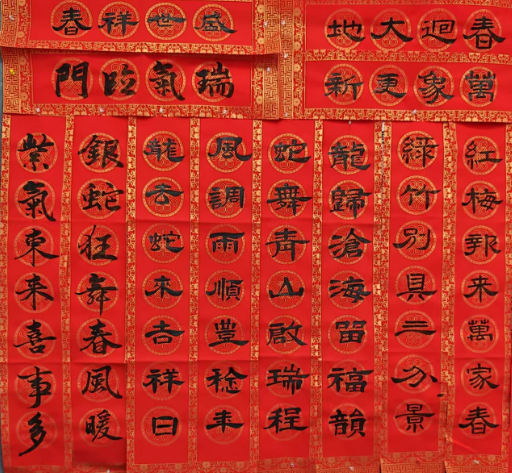 春迴大地
盛世祥春
萬象更新
瑞氣臨門
紅梅報来萬家春
綠竹別具三分景
龍歸滄海留福韻
蛇舞青山啟瑞程
風調雨順豊稔年
龍去蛇来吉祥日
銀蛇狂舞春風暖
紫氣東来喜事多